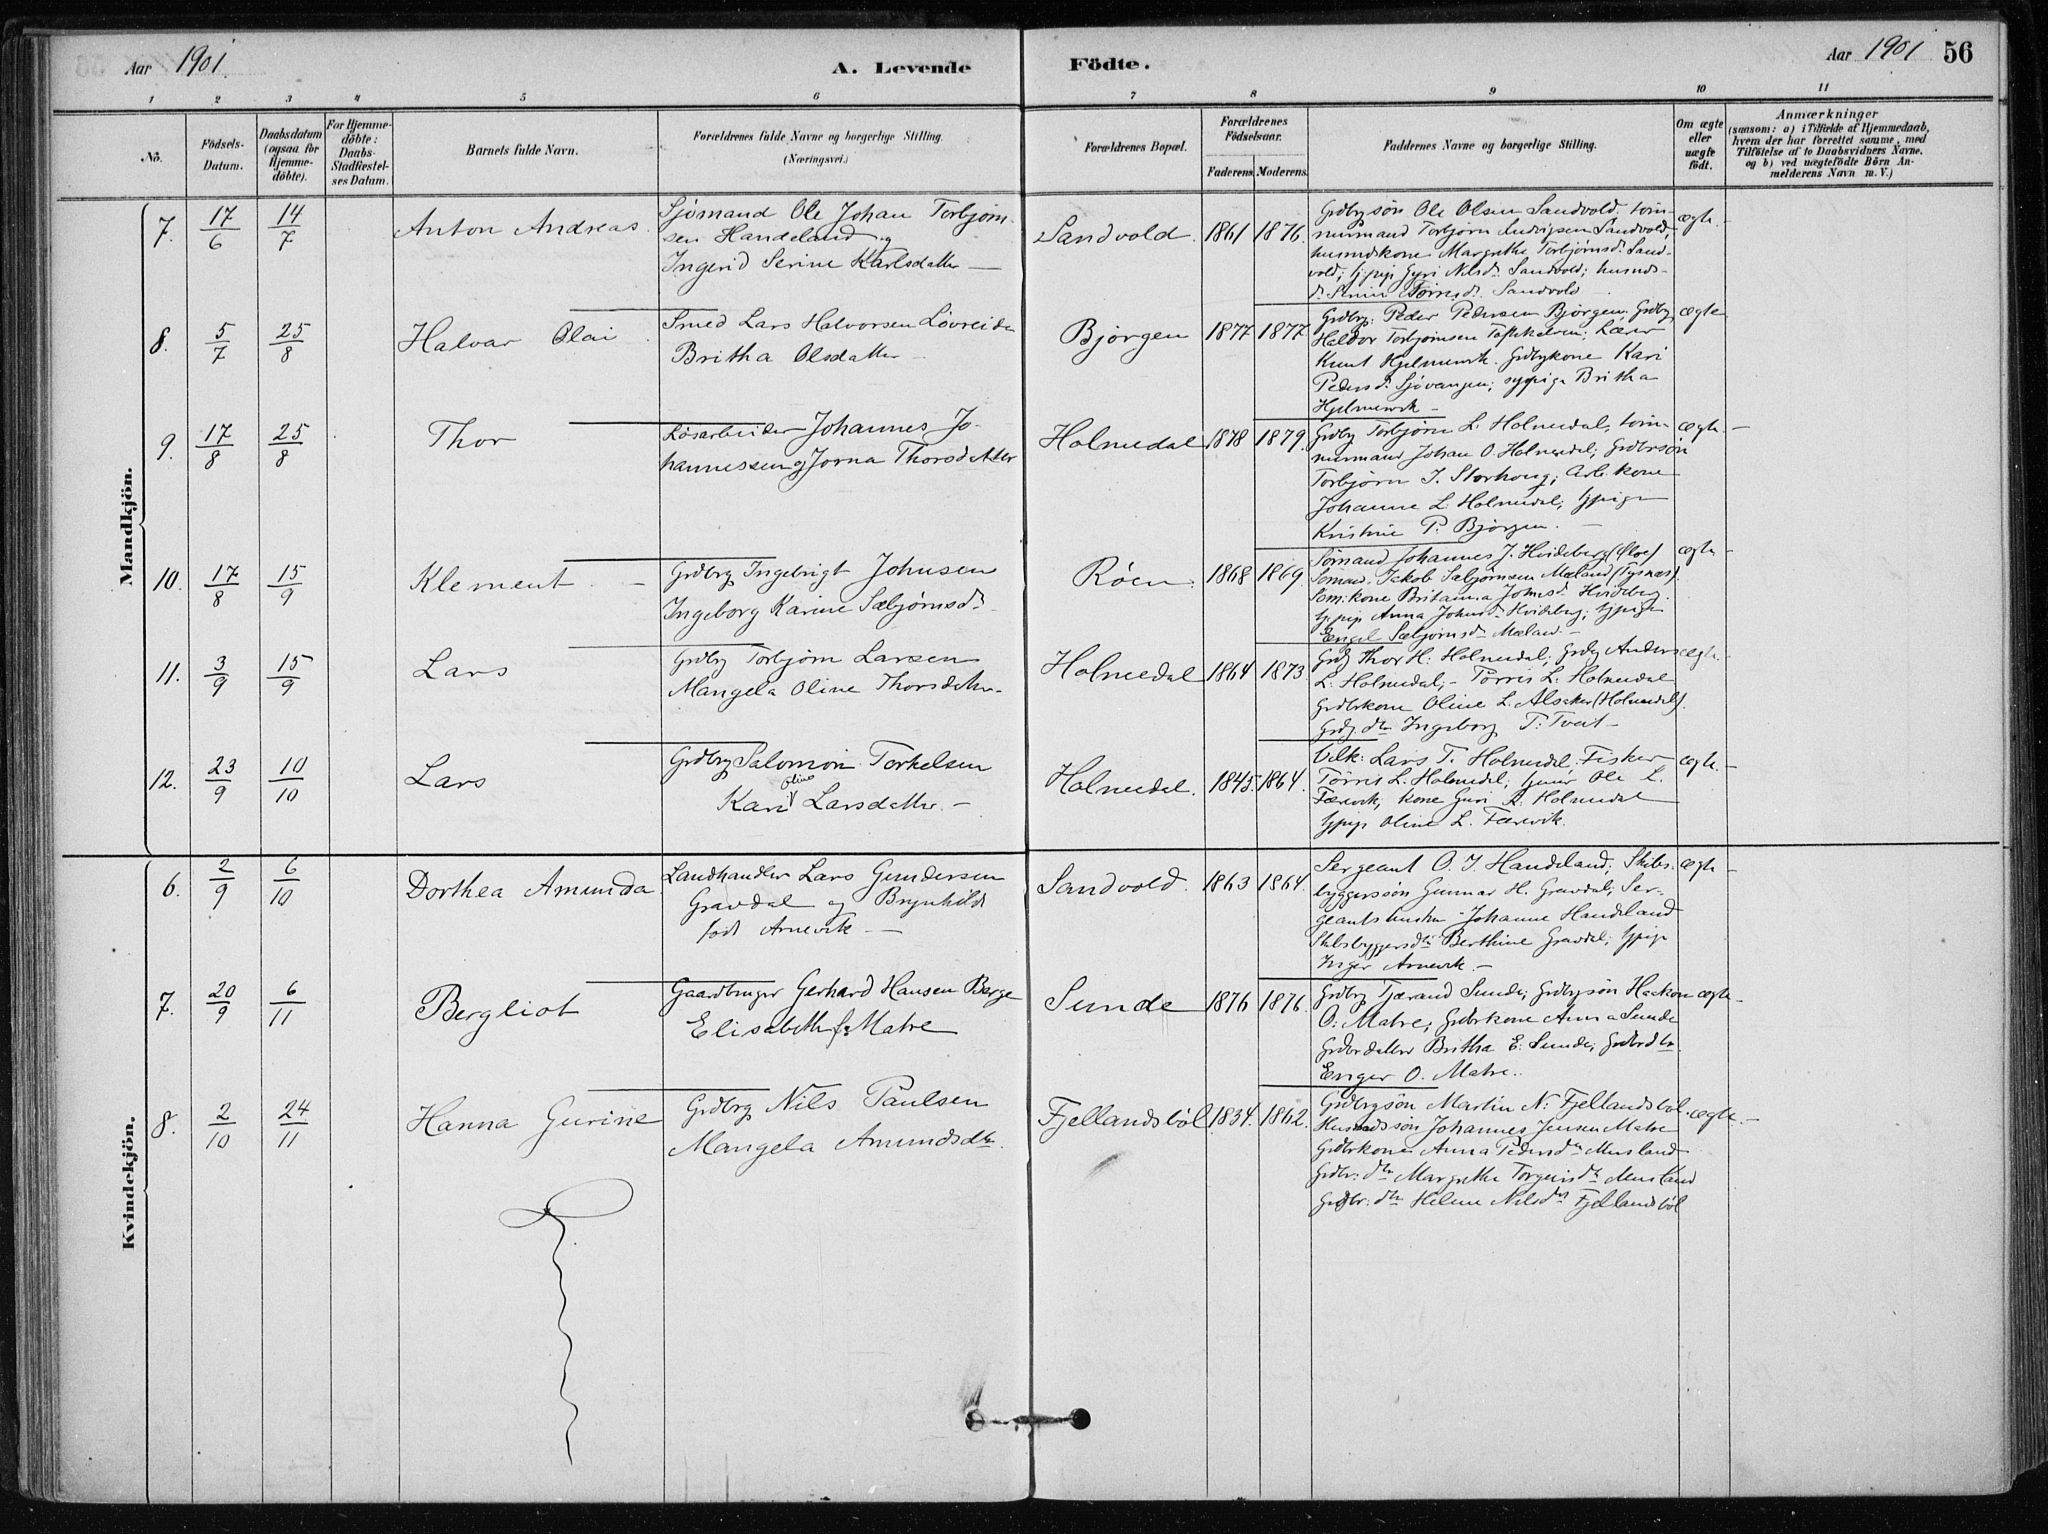 Aar 1901
A. Levende Födte.
Aar 1901 56
1 2 3 4 5 6 7 8 9 10 11
No.
Födsels-
Datum.
Daabsdatum
(ogsaa for
Hjemme-
döbte).
For Hjemme-
döbte:
Daabs-
Stadfæstel-
ses Datum.
Barnets fulde Navn.
Forældrenes fulde Navne og borgerlige Stilling.
(Næringsvei.)
Forældrenes Bopæl.
Forældrenes
Födselsaar.
Faderens. Moderens.
Faddernes Navne og borgerlige Stilling.
Om ægte
eller
uægte
födt.
Anmærkninger
(saasom: a) i Tilfælde af Hjemmedaab,
hvem der har forrettet samme, med
Tilföielse af to Daabsvidners Navne,
og b) ved uægtefödte Börn An-
melderens Navn m. V.)
Mandkjön.
7. 17/6 14/7 Anton Andreas.
Sjömand Ole Johan Torbjörn-
sen Handeland og
Ingerid Serine Karlsdatter —
Sandvold. 1861 1876.
Grdbrgsön Ole Olsen Sandvold. töm-
mermand Torbjörn Ludvigsen Sandvold,
husmdskone Margrethe Torbjörnsd. Sand-
vold; Gyri Nilsd. Sandvold; husmds-
Sandvold
ægte. –
8. 5/7 25/8 Halvar Olai
Smed Lars Halvorsen Lövreiden
Britha Olsdatter —
Bjørgen 1877 1877.
Grdbrg: Peder Pedersen Bjørgen; Grdbrg.
Haldor Torbjörnsen Lærer
Knut Hjelmervik. Grdbrkone Kari
Pedersd. Sjövangen; sypige Britha
Hjelmervik –
ægte
9. 17/8 25/8 Thor
Løsarbeider Johannes Jo-
hannessen og Jorna Thorsdatter
Holmedal 1878 1879.
Grdbrg Torbjörn L. Holmedal, töm-
mermand Johan O. Holmedal; Grdbrsön
Torbjørn J. Storhoug; Arb. kone
Johanne L. Holmedal; Gjpige
Kristine P. Bjørgen. —
ægte. –
10. 17/8 15/9 Klement. –
Grdbrg Ingebrigt Johnsen
Ingeborg Karine Sæbjörnsd.
Röen. 1868 1869.
Sömand Johannes J. Hvideberg (Ølve)
Sömand Jakob Sæbjørnsen Mæland (Tysnæs).
Söm: kone Britanna Johnsd. Hvideberg.
Gjpige Anna Johnsd. Hvideberg; Gjpige
Engel Sæbjörnsd. Mæland. –
ægte –
11. 3/9 15/9 Lars
Grdbrg Torbjørn Larsen
Mangela Oline Thorsdatter –
Holmedal 1864 1873
Grdbrg Thor H. Holmedal; Grdbrg Anders
L. Holmedal; – Törris L. Holmedal
Grdbrkone Oline L. Alsaker (Holmedal).
Grdbrg. dtr Ingeborg T. Tveit –
ægte.
12. 23/9 10/10 Lars
Grdbrg Salomon Torkelsen
Kari Oline Larsdatter. –
Holmedal. 1845. 1864.
Ulk: Lars T. Holmedal. Fisker
Törris L. Holmedal; Ole L.
Færevik, kone Guri R. Holmedal
Gjpige Oline L. Færevik.
ægte. –
Kvindekjön.
6. 2/9 6/10 Dorthea Amunda
Landhandler Lars Gundersen
Gravdal og Brynhild
födt Arnevik —
Sandvold. 1863 1864.
Sergeant O. J. Handeland; Skibs-
byggersön Gunnar H. Gravdal; Ser-
geantshustru Johanne Handeland
Skibsbyggersdtr Berthine Gravdal; Gjpige
Inger Arnevik. –
ægte –
7. 20/9 6/11 Bergliot
Gaardbruger Gerhard Hansen Berge
Elisabeth f. Matre
Sunde 1876 1876.
Grdbrg Tjærand Sunde; Grdbrgsön Haakon
O. Matre; Grdbrkone Anna Sunde
Grdbrdatter Britha E. Sunde; Grdbrdtr.
Enger O. Matre.
ægte –
8. 2/10 24/11 Hanna Gurine
Grdbrg Nils Paulsen
Mangela Amundsdtr.
Fjellandsböl 1834. 1862.
Grdbrgsön Martin N. Fjellandsböl.
Husmandssön Johannes Jensen Matre
Grdbrkone Anna Pedersdtr Musland
Grdbr. dtr Margrethe Torgeirsdtr Musland
Grdbr: dtr Helene Nilsdtr Fjellandsböl
ægte. –